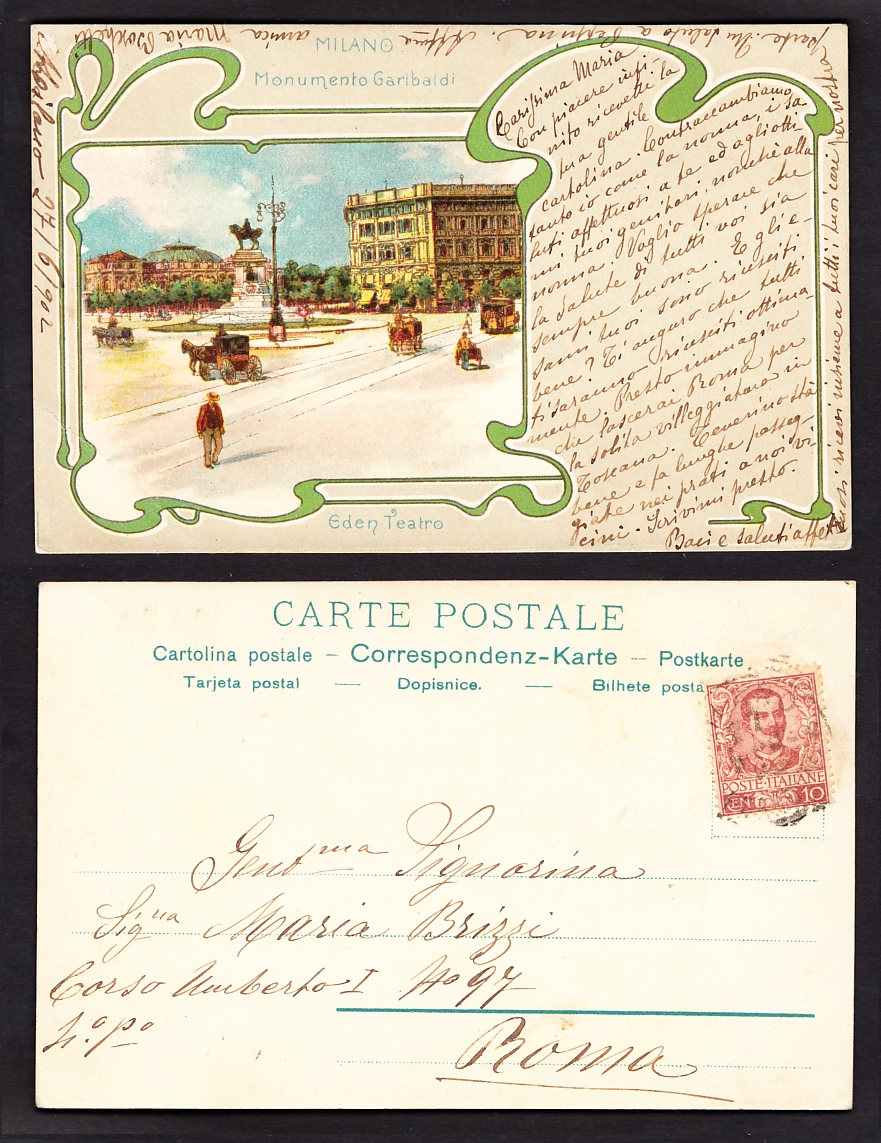 MILANO
Monumento Garibaldi
Eden Teatro
Milano - 27/6/902
Carissima Maria
Con piacere infi-
nito ricevetti la
tua gentile
cartolina. Contraccambiamo
tanto io come la nonna, i sa
luti affettuosi a te ed agli otti
mi tuoi genitori, nonchè alla
nonna. Voglio sperare che
la salute di tutti voi sia
sempre buona. E gli e-
sami tuoi sono riusciti
bene? Ti auguro che tutti
ti saranno riusciti ottima-
mente. Presto immagino
che lascerai Roma per
la solita villeggiatura in
Toscana. Severino stà
bene e fa lunghe passeg-
giate nei prati a noi vi
cini. Scrivimi presto.
Baci e saluti affet
tuosi ricevi insieme a tutti i tuoi cari per nostra
parte. Un saluto a Peppina. Affma amica Maria Boschetti
CARTE POSTALE
Cartolina postale – Correspondenz-Karte – Postkarte
Tarjeta postal — Dopisnice. — Bilhete posta
POSTE·ITALIANE
CEN 10
Gentma Signorina
Signa Maria Brizzi
Corso Umberto I No 97
4.o po
Roma